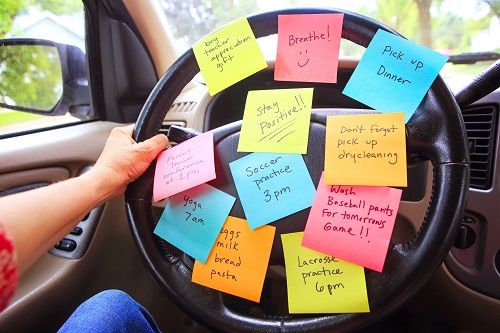 buy
teacher
appreciation
gift
Breathe!
Pick up
Dinner
Stay
Positive!!
Don't Forget
pick up
drycleaning
Parent
Teacher
conference
at 1 pm
Soccer
practice
3 pm
Wash
Baseball pants
For tomorrows
Game!!
yoga
7am
eggs
milk
bread
pasta
Lacrosse
practice
6pm